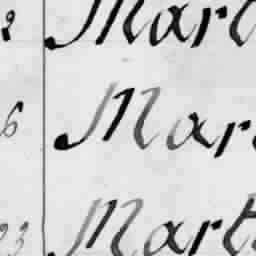 2 Mart
6 Mar
23 Mart